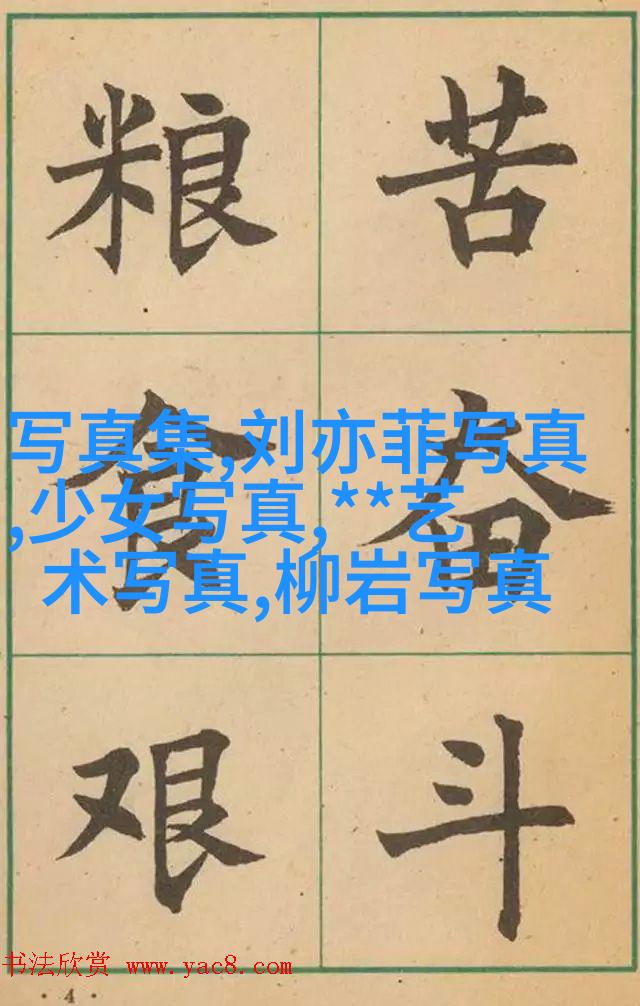 粮食艰
苦奋斗
写真集,刘亦菲写真
,少女写真,**艺
术写真,柳岩写真
书法欣赏 www.yac8.com
· 4 ·